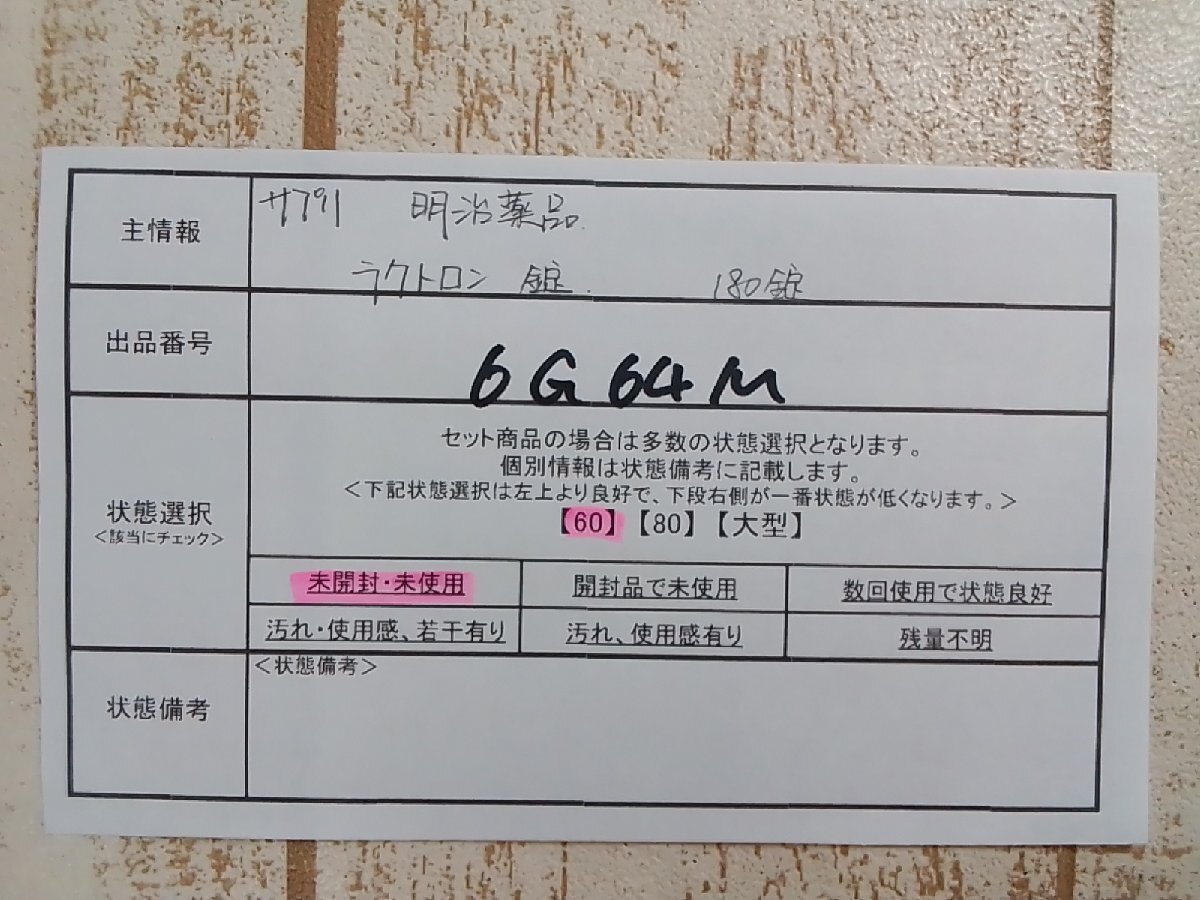 主情報
サプリ 明治薬品
ラクトロン 錠. 180錠
出品番号
6G64M
状態選択
<該当にチェック>
セット商品の場合は多数の状態選択となります。
個別情報は状態備考に記載します。
<下記状態選択は左上より良好で、下段右側が一番状態が低くなります。>
【60】【80】【大型】
未開封・未使用 開封品で未使用 数回使用で状態良好
汚れ・使用感、若干有り 汚れ、使用感有り 残量不明
状態備考
<状態備考>